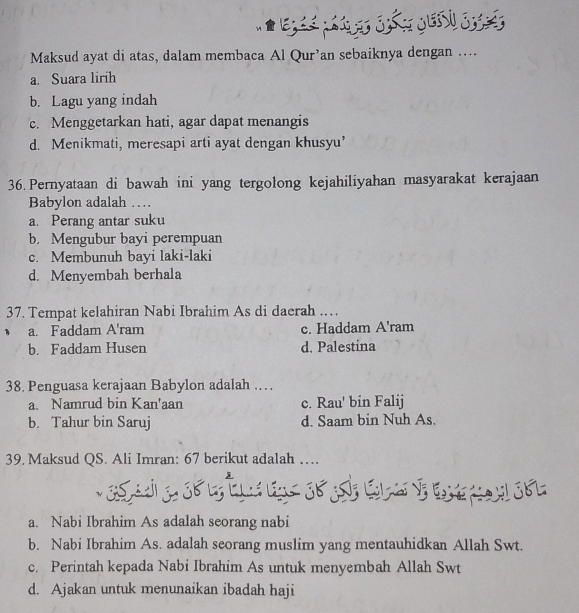 وَيَخِرُّوْنَ لِلْاَذْقَانِ يَبْكُوْنَ وَيَزِيْدُهُمْ خُشُوْعًا
Maksud ayat di atas, dalam membaca Al Qur'an sebaiknya dengan ....
a. Suara lirih
b. Lagu yang indah
c. Menggetarkan hati, agar dapat menangis
d. Menikmati, meresapi arti ayat dengan khusyu'
36. Pernyataan di bawah ini yang tergolong kejahiliyahan masyarakat kerajaan
Babylon adalah ....
a. Perang antar suku
b. Mengubur bayi perempuan
c. Membunuh bayi laki-laki
d. Menyembah berhala
37. Tempat kelahiran Nabi Ibrahim As di daerah ....
a. Faddam A'ram
b. Faddam Husen
c. Haddam A'ram
d. Palestina
38. Penguasa kerajaan Babylon adalah ....
a. Namrud bin Kan'aan
b. Tahur bin Saruj
c. Rau' bin Falij
d. Saam bin Nuh As.
39. Maksud QS. Ali Imran: 67 berikut adalah ....
مَاكَانَ اِبْرٰهِيْمُ يَهُوْدِيًّا وَّلَا نَصْرَانِيًّا وَّلٰكِنْ كَانَ حَنِيْفًا مُّسْلِمًا ۗ وَمَا كَانَ مِنَ الْمُشْرِكِيْنَ
a. Nabi Ibrahim As adalah seorang nabi
b. Nabi Ibrahim As. adalah seorang muslim yang mentauhidkan Allah Swt.
c. Perintah kepada Nabi Ibrahim As untuk menyembah Allah Swt
d. Ajakan untuk menunaikan ibadah haji